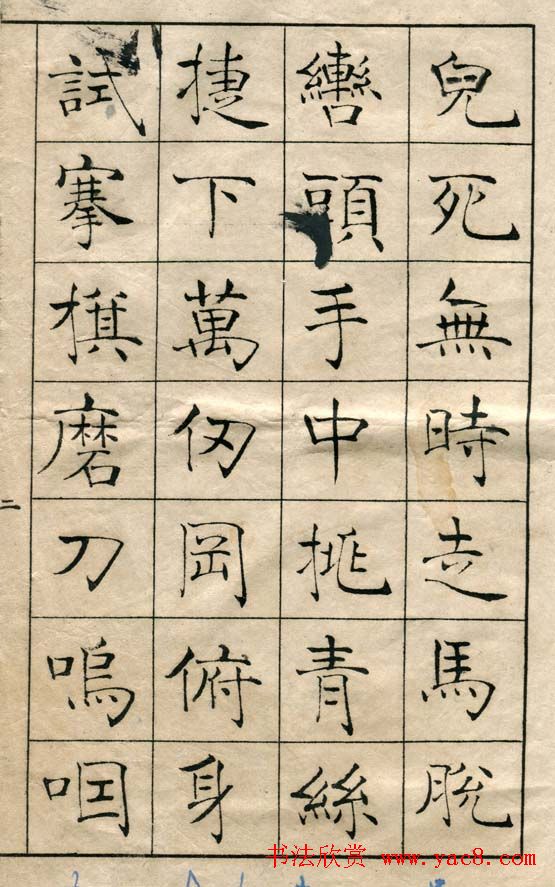 兒死無時走馬脫
轡頭手中挑青絲
捷下萬仞岡俯身
試搴旗磨刀嗚咽
二
书法欣赏 www.yac8.com